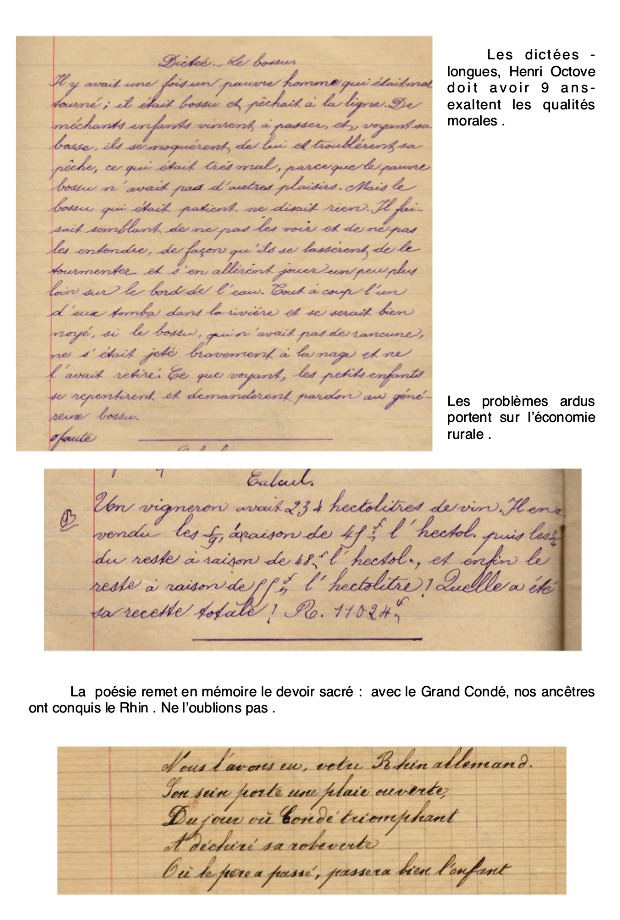 Dictée. _ Le bossu
Il y avait une fois un pauvre homme qui était mal
tourné ; il était bossu et pêchait à la ligne. De
méchants enfants vinrent à passer, et, voyant sa
bosse, ils se moquèrent, de lui et troublèrent, sa
pêche, ce qui était très mal, parce que le pauvre
bossu n'avait pas d'autres plaisirs. Mais le
bossu qui était patient ne disait rien. Il fai-
sait semblant de ne pas les voir et de ne pas
les entendre, de façon qu'ils se lassèrent, de le
tourmenter et s'en allèrent jouer un peu plus
loin sur le bord de l'eau. Tout à coup l'un
d'eux tomba dans la rivière et se serait bien
noyé, si le bossu, qui n'avait pas de rancune,
ne s'était jeté bravement à la nage et ne
l'avait retiré. Ce que voyant, les petits enfants
se repentirent et demandèrent pardon au géné-
reux bossu.
0 faute
Les dictées -
longues, Henri Octove
doit avoir 9 ans-
exaltent les qualités
morales .
Les problèmes ardus
portent sur l'économie
rurale .
Calcul.
Un vigneron avait 234 hectolitres de vin. Il en a
vendu les 5/9, à raison de 45f l'hectol. puis les 3/4
du reste à raison de 48f l'hectol., et enfin le
reste à raison de 55f l'hectolitre ! Quelle a été
sa recette totale ? R. 11024f
La poésie remet en mémoire le devoir sacré : avec le Grand Condé, nos ancêtres
ont conquis le Rhin . Ne l'oublions pas .
Nous l'avons eu, votre Rhin allemand.
Son sein porte une plaie ouverte,
Du jour où Condé triomphant
A déchiré sa robe verte
Où le père a passé, passera bien l'enfant